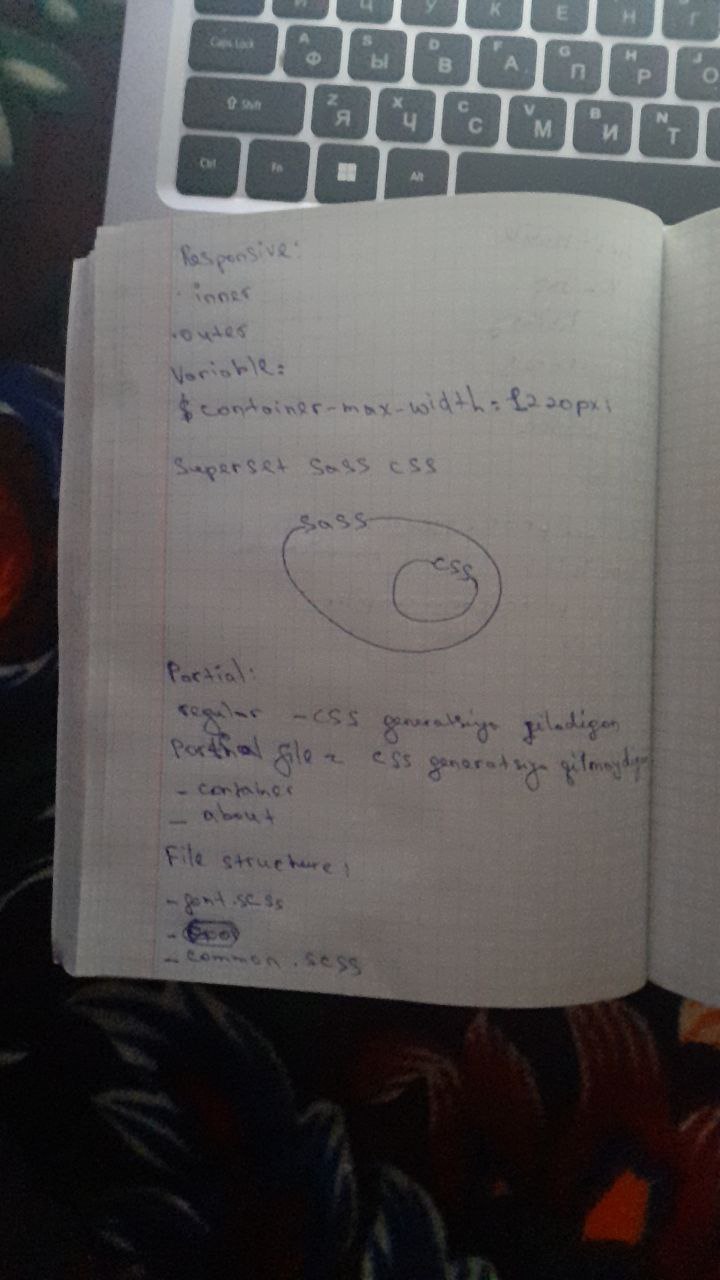 И Ц У К Е Н Г
Caps Lock A Ф S Ы D В F А G П H Р J О
Shift Z Я X Ч C С V М B И N Т
Ctrl Fn Alt
Responsive:
· inner
· outer
Variable:
$container-max-width: 1220px;
Superset Sass css
Sass
css
Partial:
regular - css generatsiya qiladigan
Partial file = css generatsiya qilmaydigan
- container
- about
File structure:
- font.scss
-
- common.scss